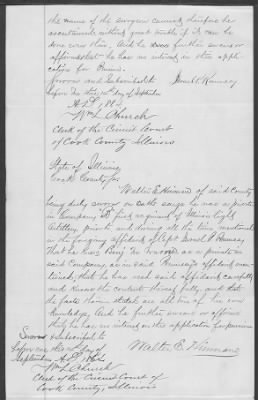 the name of the surgeon cannot therefore be
ascertained without great trouble if it can be
done even then. And he further swears or
affirms that he has no interest in this appli-
cation for Pension.
Sworn and Subscribed to
before me this 10th day of September
A.D. 1884
Wm L. Church
Clerk of the Circuit Court
of Cook County, Illinois
State of Illinois
Cook County ss
Walter E. of said County
being duly sworn on oath says he was a private
in Company "B" first regiment of Illinois Light
Artillery, private and during all the time mentioned
in the foregoing affidavit of Capt Israel P. Rumsey
that he was in
said Company, as in said Rumsey's affidavit con-
tained; that he has read said affidavit carefully
and know the contents thereof fully, and that
the facts therein stated are all true of his own
knowledge, And he further swears or affirms
that he has no interest in this application for pension
Sworn & Subscribed to
before me this day of
September A.D. 1884
Walter E.
Wm L. Church
Clerk of the Circuit Court of
Cook County, Illinois